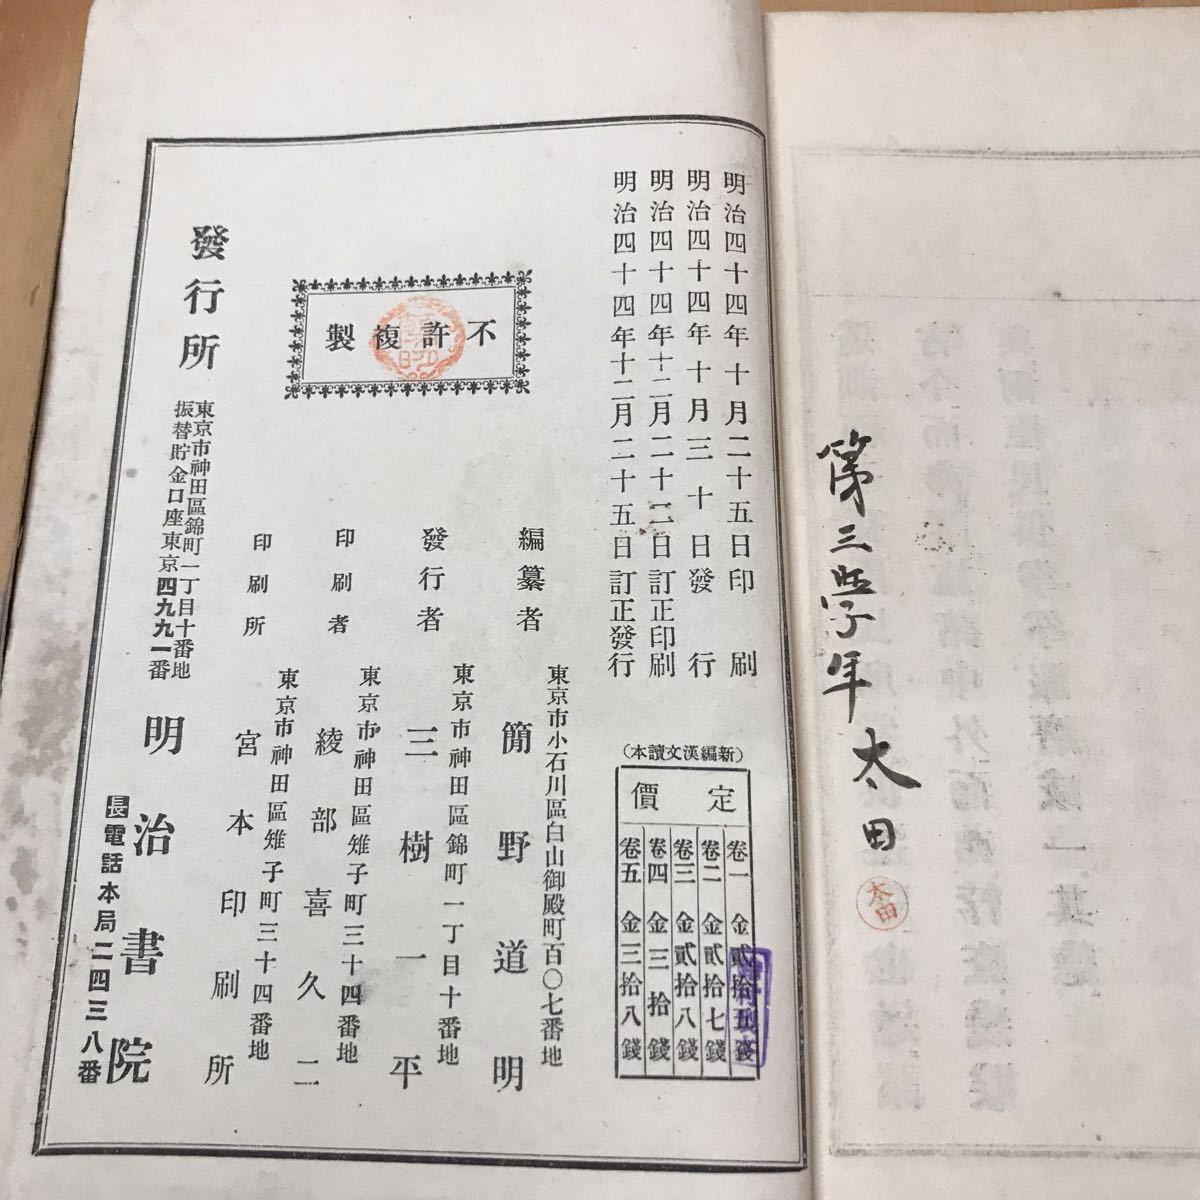 第三学年 太田
太田
明治四十四年十月二十五日印刷
明治四十四年十月三十日發行
明治四十四年十二月二十二日訂正印刷
明治四十四年十二月二十五日訂正發行
(新編漢文讀本)
定價
卷一 金貳拾五錢
卷二 金貳拾七錢
卷三 金貳拾八錢
卷四 金三拾錢
卷五 金三拾八錢
不許複製
編纂者 簡野道明
東京市小石川區白山御殿町百〇七番地
發行者 三樹一平
東京市神田區錦町一丁目十番地
印刷者 綾部喜久二
東京市神田區雉子町三十四番地
印刷所 宮本印刷所
東京市神田區雉子町三十四番地
發行所
東京市神田區錦町一丁目十番地
振替貯金口座東京四九九一番
明治書院
長電話本局二四三八番